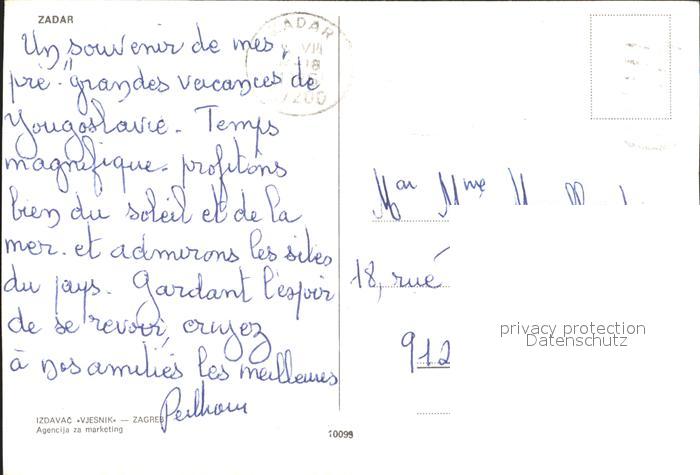 ZADAR
Un souvenir de mes,
pré-"grandes vacances de
Yougoslavie. Temps
magnifique. profitons
bien du soleil et de la
mer. et admirons les sites
du pays. Gardant l'espoir
de se revoir, croyez
à nos amitiés les meilleures
IZDAVAČ «VJESNIK» — ZAGREB
Agencija za marketing
10099
ZADAR
VII
18
Mme
18, rue
912
privacy protection
Datenschutz